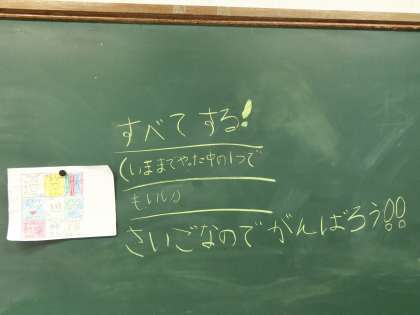 すべてする!
(いままでやった中の1つで
もいい)
さいごなのでがんばろう!!